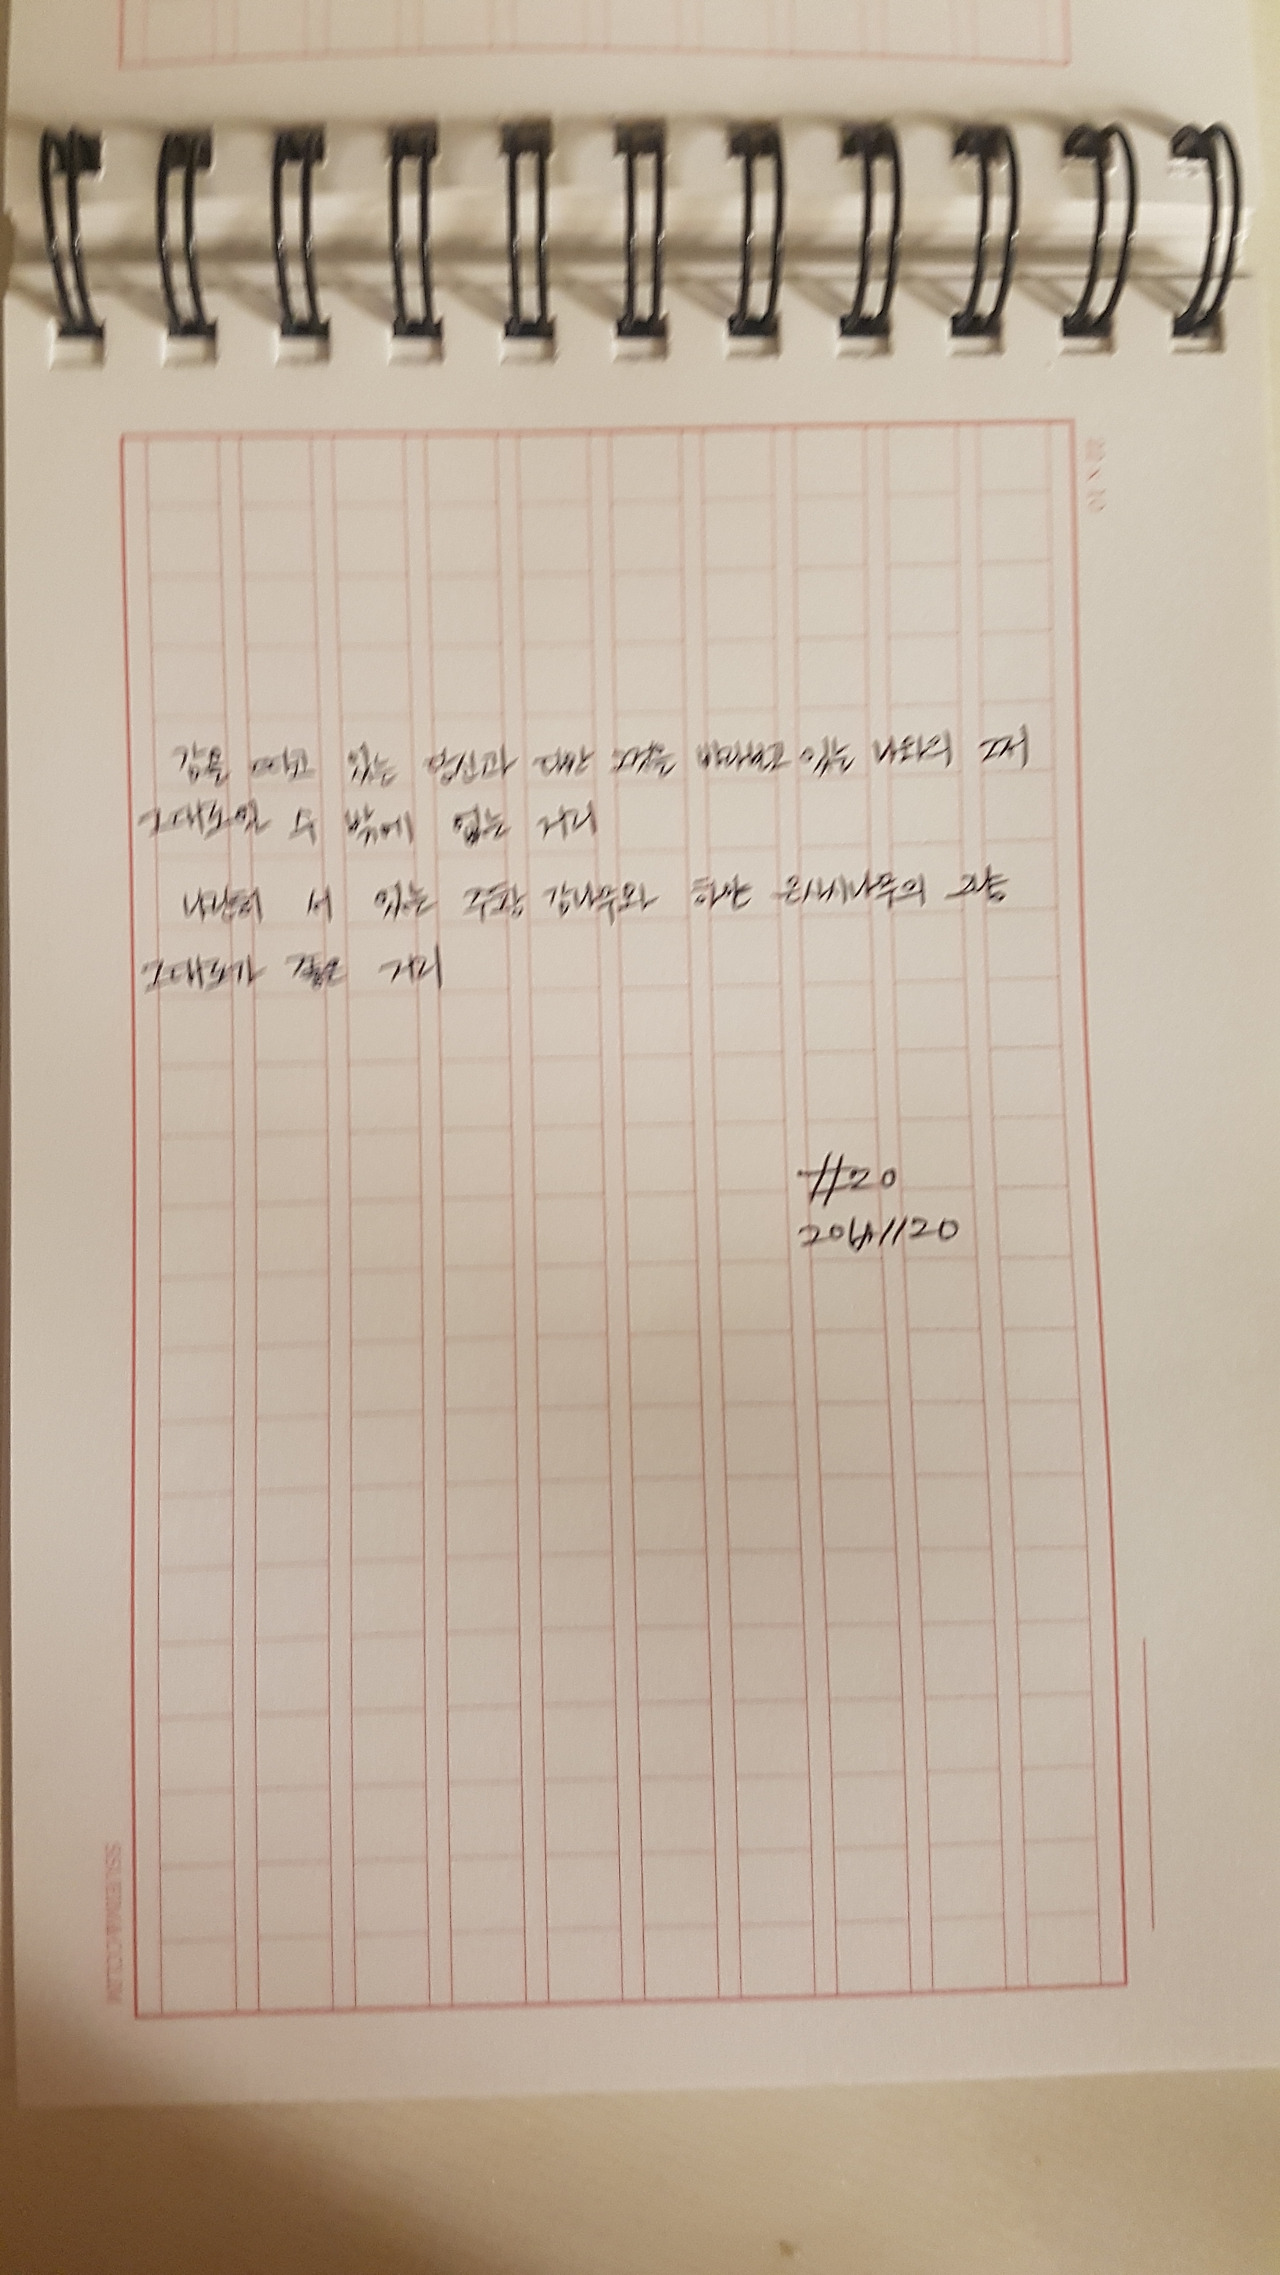 감을 따고 있는 당신과 다만 그것을 바라보고 있는 나와의 그저
그대로일 수 밖에 없는 거리
나란히 서 있는 주황 감나무와 하얀 은사시나무의 그냥
그대로가 좋은 거리
#20
20151120
22 x 10